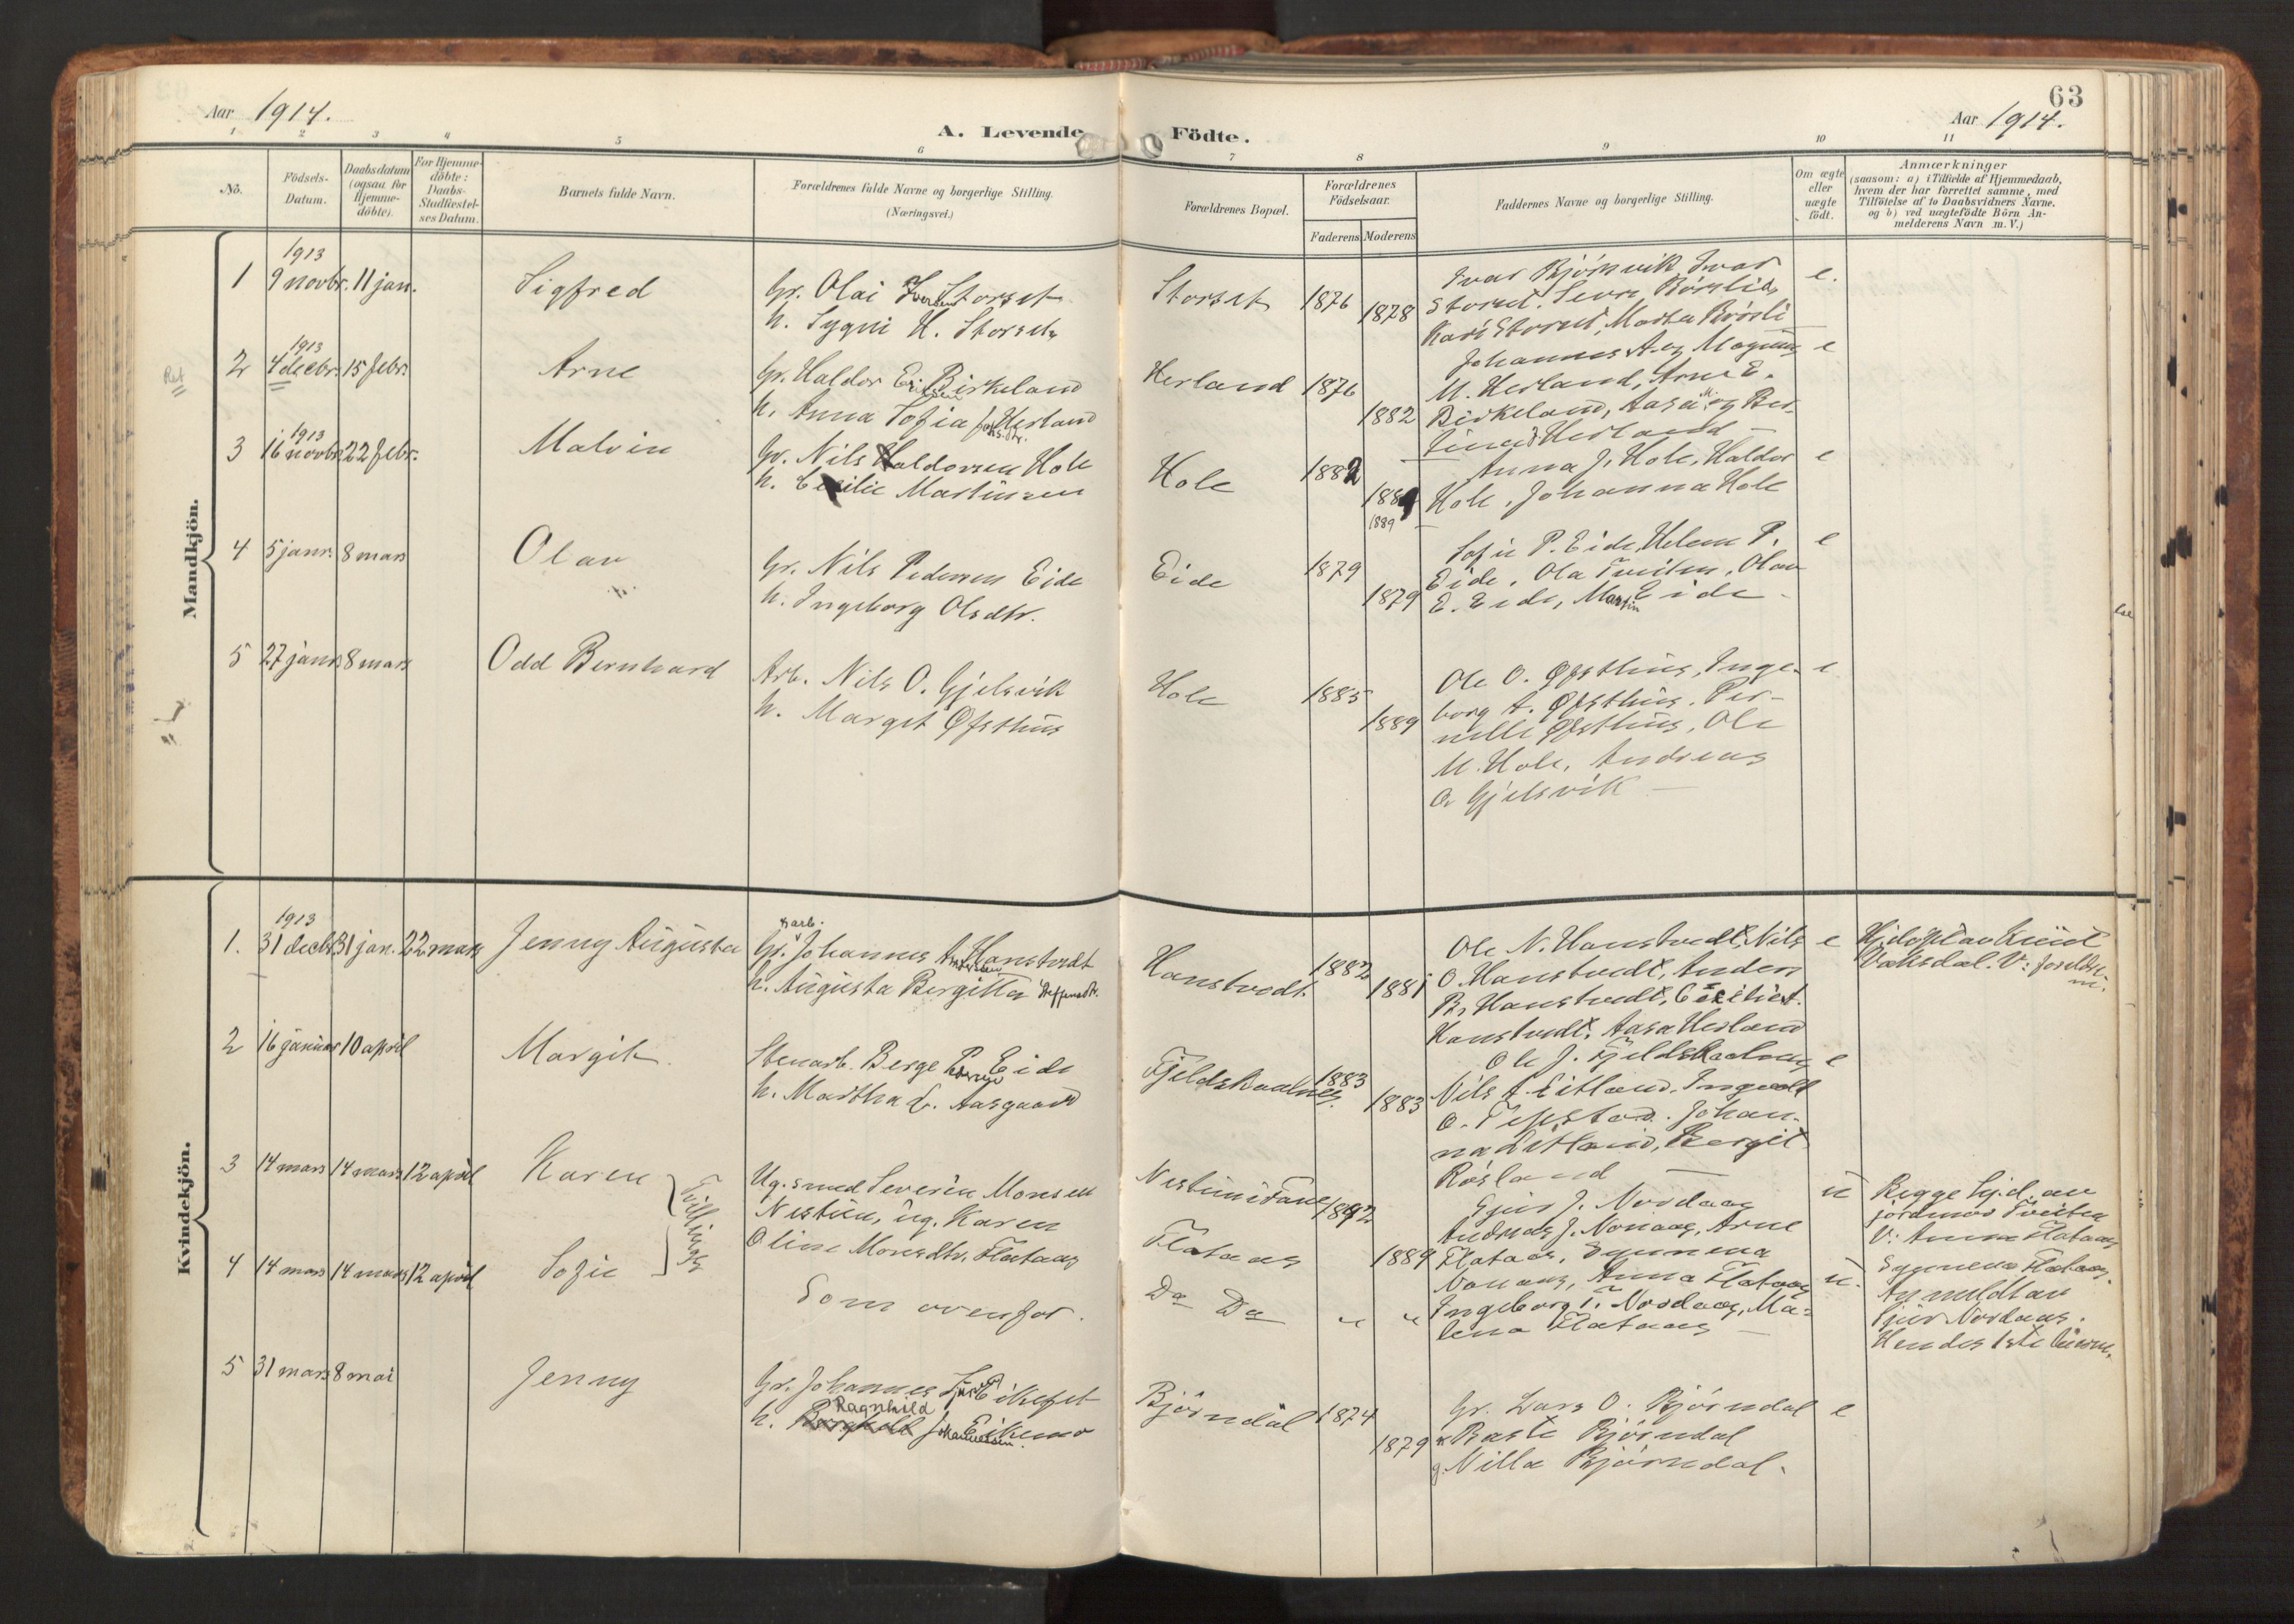 63
Aar 1914.
A. Levende Födte.
Aar 1914.
1 2 3 4 5 6 7 8 9 10 11
No.
Födsels-
Datum.
Daabsdatum
(ogsaa for
Hjemme-
döbte).
For Hjemme-
döbte:
Daabs-
Stadfæstel-
ses Datum.
Barnets fulde Navn.
Forældrenes fulde Navne og borgerlige Stilling.
(Næringsvei.)
Forældrenes Bopæl.
Forældrenes
Födselsaar.
Faderens
Moderens
Faddernes Navne og borgerlige Stilling.
Om ægte
eller
uægte
födt.
Anmærkninger
(saasom: a) i Tilfælde af Hjemmedaab,
hvem der har forrettet samme, med
Tilföielse af to Daabsvidners Navne.
og b) ved uægtefödte Börn An-
melderens Navn m. V.)
Mandkjön.
1
1913
9 novbr.
11 jan.
Sigfred
Gr. Olai Iversen Storset
h. Sygni H. Storset
Storset
1876
1878
Ivar Bjørnvik, Ivar
Storset.
Kari Storset, Marta
e.
2
1913
4 decbr.
15 febr.
Arne
Gr. Haldor Birkeland
h. Anna Sofia Herland
Herland
1876
1882
Johannes A. og Magnus
M. Herland, Arne E.
Birkeland, Aasa og Ber-
Herland
e
3
1913
16 novbr.
22 febr.
Malvin
Gr. Nils Haldorsen Hole
h. Cecilie Martinsen
Hole
1882
1889
Anna J. Hole, Haldor
Hole, Johanna Hole
e
4
5 janr.
8 mars
Olav
Gr. Nils Pedersen Eide
h. Ingeborg Olsdtr.
Eide
1879
1879
Sofie P. Eide, Helene P.
Eide, Ola Tveiten, Olav
E. Eide, Martin Eide
e
5
27 janr.
8 mars
Odd Bernhard
Arb. Nils O. Gjelsvik
h. Margit Øfsthus
Hole
1885
1889
Ole O. Øfsthus, Inge-
borg A. Øfsthus, Per-
nille Øfsthus, Ole
M. Hole, Andreas
O. Gjelsvik
e
Kvindekjön.
1.
1913
31 decbr.
31 jan.
22 mars
Jenny Augusta
Gr. Johannes Andersen Hanstvedt
h. Augusta Bergitta Steffensdtr.
Hanstvedt
1882
1881
Ole N. Hanstvedt, Nils
O. Hanstvedt, Anders
B. Hanstvedt, Cecilie A.
Hanstvedt, Aasa Herland
e
Hj.döpt av Knut
Vaksdal. V: foreldre
2
16 januar
10 april
Margit
Stenarb. Berge Eide
h. Martha L. Aasgaard
Fjeldskaalnes
1883
1883
Ole J. Fjeldskaalnes
Nils A. Eitland, Ingvald
O. Tepstad, Johan-
na Eitland, Bergit
Røsland
e
3
14 mars
14 mars
12 april
Karen
Tvillinger
Ug. smed Severin Monsen
Nestun, ug. Karen
Oline Monsdtr. Flataas
Nestun i Fane
Flataas
1892
1889
Gjur J. Nordaas
Andreas J. Nonaas, Arne
Flataas, Synneva
Nonaas, Anna Flataas
Ingeborg T. Nordaas, Ma-
lena Flataas
u
Begge hj.d. av
jordmor Tveiten
V: Anna Flataas
Synneva Flataas.
Anmeldt av
Gjur Nordaas.
Hendes 1ste barn.
4
14 mars
14 mars
12 april
Sofie
Som ovenfor.
Do Do
" "
u.
5
31 mars
8 mai
Jenny
Gr. Johannes Eikefet
Ragnhild
h. Johannesen Eikemo
Bjørndal
1874
1879
Gr. Lars O. Bjørndal
Baste Bjørndal
g. Nilla Bjørndal.
e